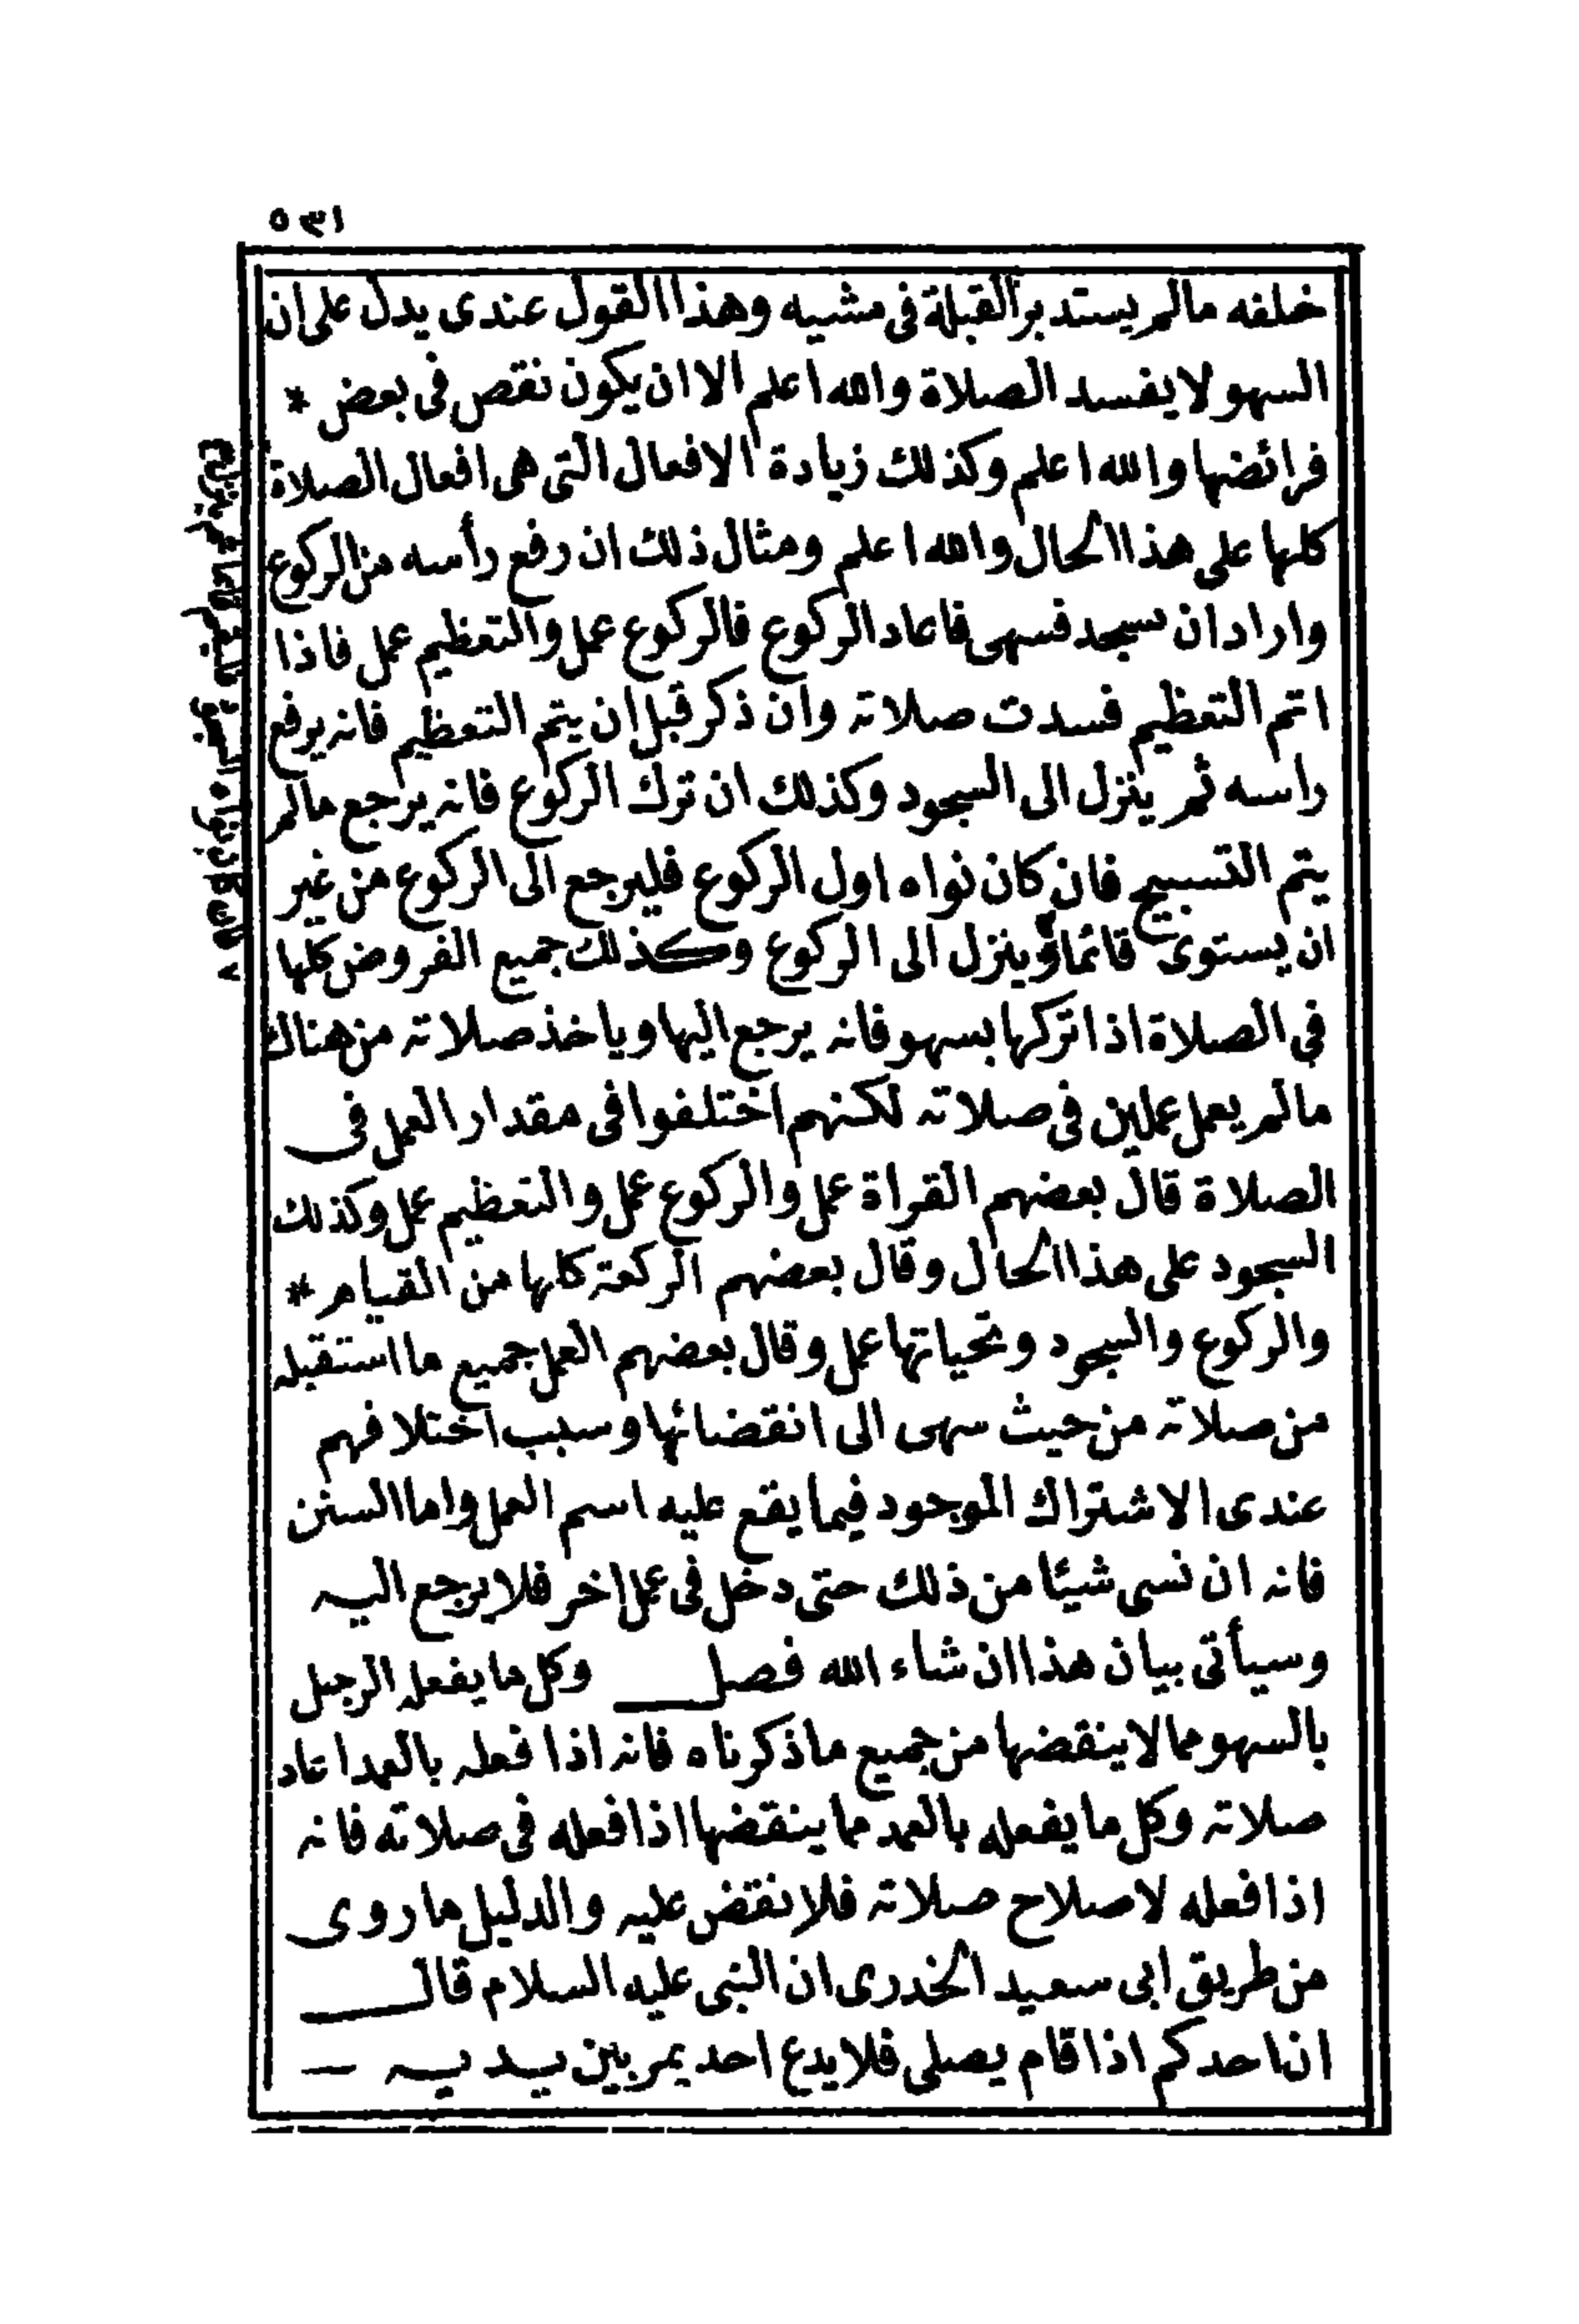 ٥٣١
خلفه مالم يستدبر القبلة فى مشيه وهذا القول عندى يدل على ان
السهو لا يفسد الصلاة والله اعلم الا ان يكون نقص فى بعض *
فرائضها والله اعلم وكذلك زيادة الافعال التى هى افعال الصلاة
كلها على هذا الحال والله اعلم ومثال ذلك ان رفع رأسه من الركوع
واراد ان يسجد فسهى فاعاد الركوع فالركوع عمل والتعظيم عمل فاذا
اتم التعظيم فسدت صلاته وان ذكر قبل ان يتم التعظيم فانه يرفع
راسه ثم ينزل الى السجود وكذلك ان ترك الركوع فانه يرجع مالم
يتم التسبيح فان كان نواه اول الركوع فليرجع الى الركوع من غير
ان يستوى قائما وينزل الى الركوع وكذلك جميع الفروض كلها
فى الصلاة اذا تركها بسهو فانه يرجع اليها وياخذ صلاته من هناك
مالم يعمل عملين فى صلاته لكنهم اختلفوا فى مقدار العمل فى
الصلاة قال بعضهم القراة عمل والركوع عمل والتعظيم عمل وكذلك
السجود على هذا الحال وقال بعضهم الركعة كلها من القيام *
والركوع والسجود وتحياتها عمل وقال بعضهم العمل جميع ما استقبله
من صلاته من حيث سهى الى انقضائها وسبب اختلافهم
عندى الاشتراك الموجود فيما يقع عليه اسم العمل واما السنن
فانه ان نسى شيئا من ذلك حتى دخل فى عمل اخر فلا يرجع اليه
وسيأتى بيان هذا ان شاء الله فصل وكل ما يفعله الرجل
بالسهو مما لا ينقضها من جميع ما ذكرناه فانه اذا فعله بالعمد اعاد
صلاته وكل ما يفعله بالعمد مما ينقضها اذا فعله فى صلاته فانه
اذا فعله لاصلاح صلاته فلا نقض عليه والدليل ما روى
من طريق ابى سعيد الخدرى ان النبى عليه السلام قال
ان احدكم اذا قام يصلى فلا يدع احد يمر بين يديه